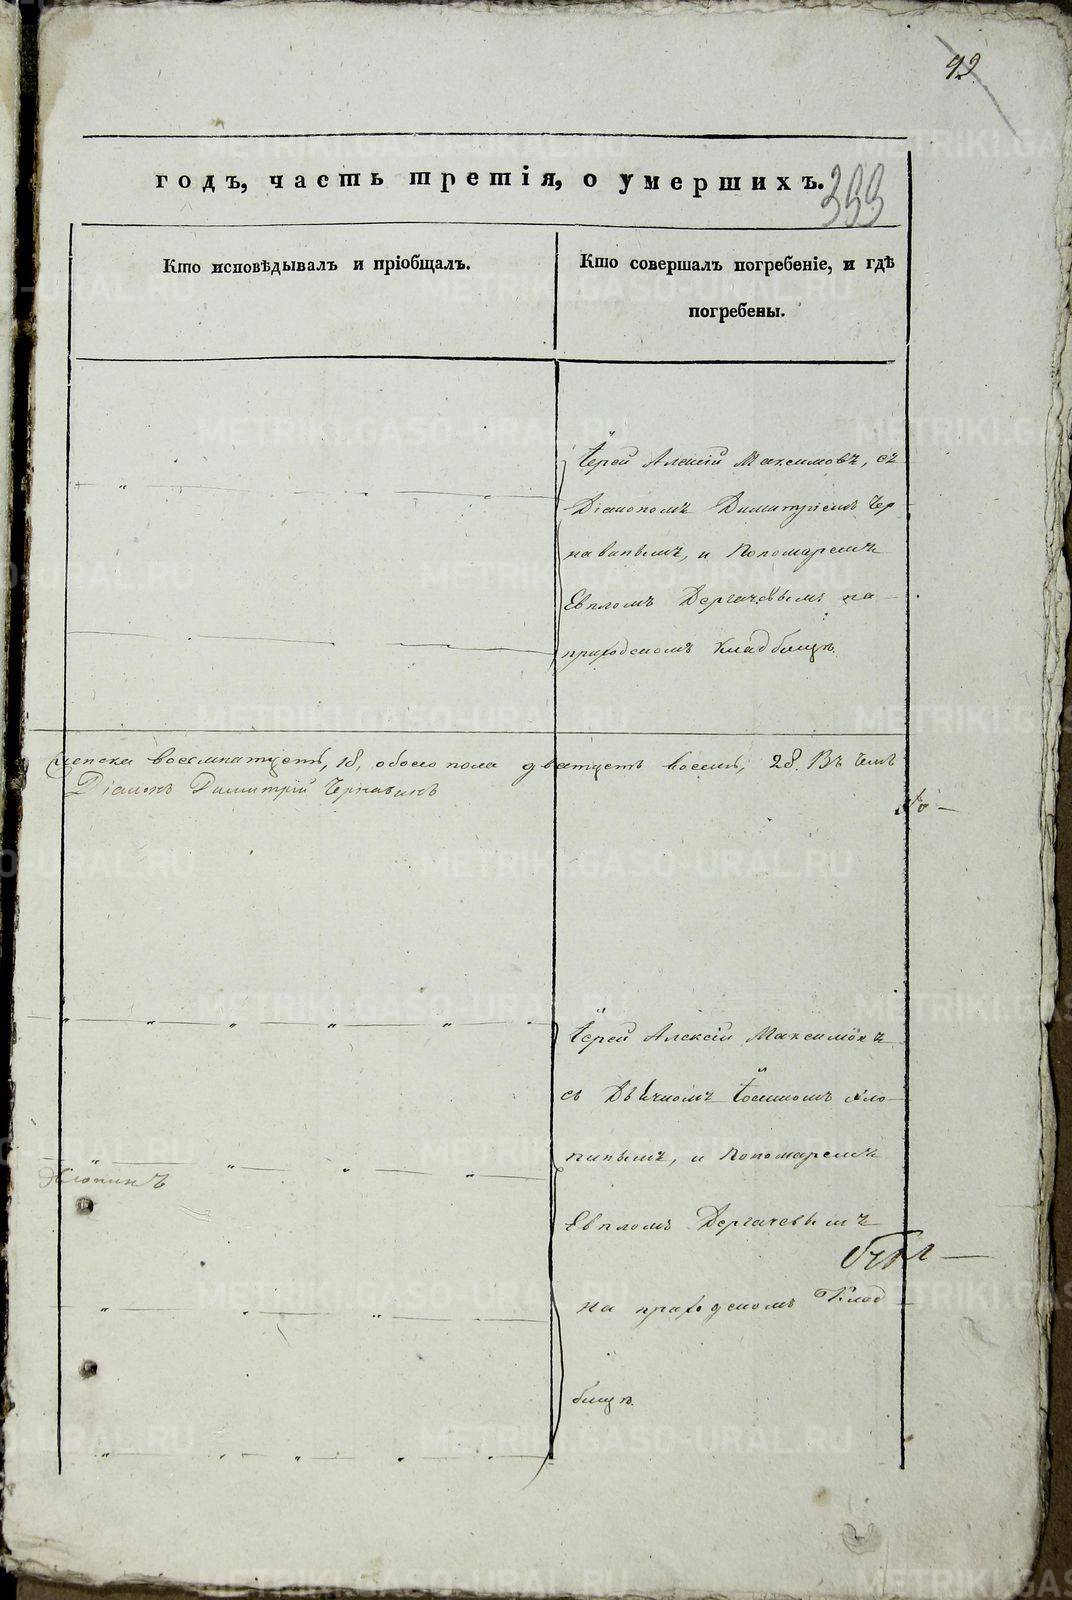 92
годъ, часть третія, о умершихъ.
399
Кто исповѣдывалъ и пріобщалъ.
Кто совершалъ погребеніе, и гдѣ
погребены.
Іерей Алексій Максимовъ, съ
Діакономъ Димитріемъ Чер
навинымъ, и Пономаремъ
Евпломъ Дергачевымъ на
приходскомъ кладбищѣ
женска восемнатцеть, 18, обоего пола дватцеть восемь, 28. Въ чемъ
Діаконъ Димитрій Чернавинъ
Іерей Алексій Максимовъ
съ Дьячкомъ Іоанномъ Хло
пинымъ, и Пономаремъ
Хлопинъ
Евпломъ Дергачевымъ
на приходскомъ Клад
бищѣ
METRIKI.GASO-URAL.RU